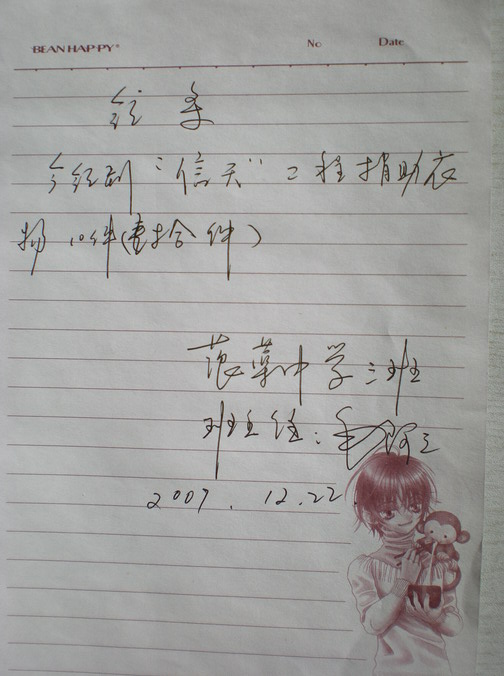 BEANHAP·PY®
No
Date
领条
今领到“信天”工程捐助衣
物10件(壹拾件)
中学三班
班主任:毛阿
2007.12.22